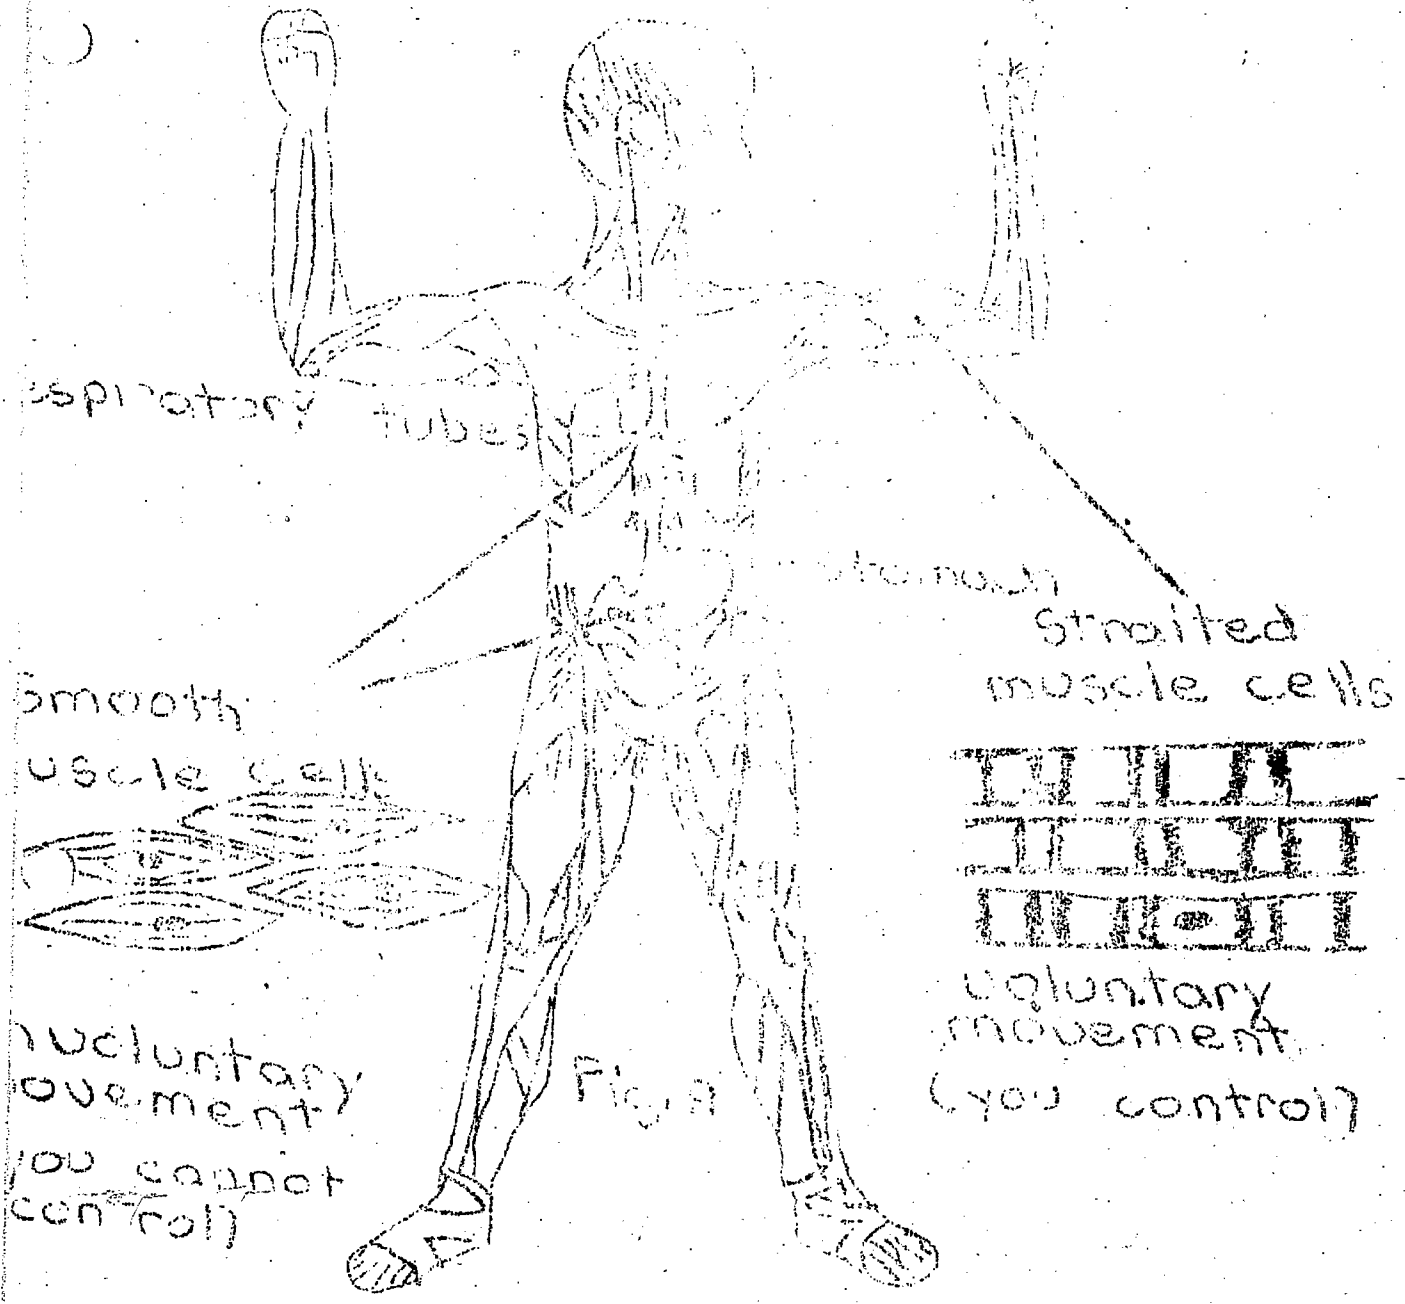 espiratory tubes
stomach
Straited
muscle cells
Smooth
uscle cells
voluntary
movement
(you control)
nvoluntary
ovement
you cannot
control)
Fig. A